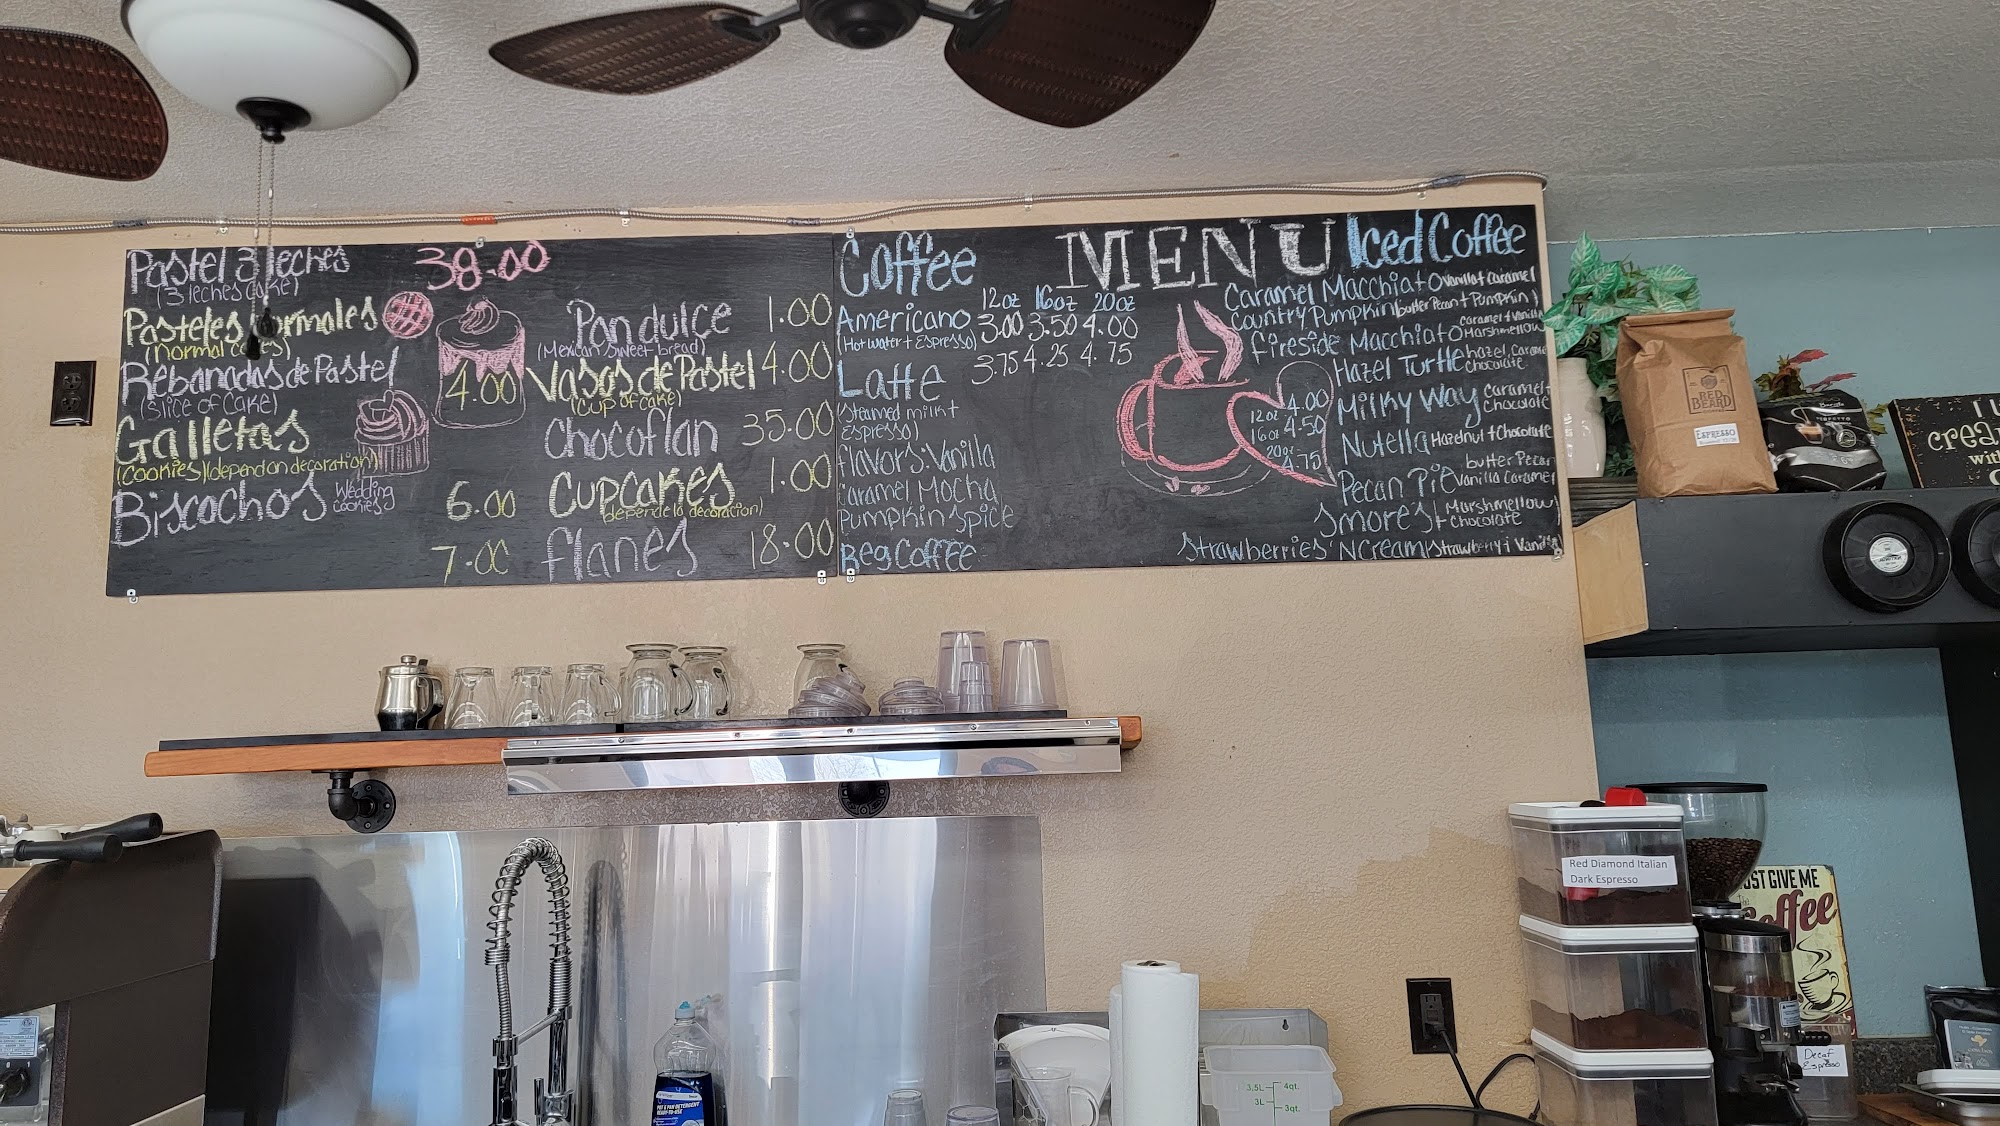 Pastel 3 leches 38.00
(3 leches cake)
Pasteles normales
(normal cakes)
Rebanadas de Pastel 4.00
(slice of cake)
Galletas
(cookies) (depend on decoration)
Biscochos Wedding cookies 6.00
7.00
Pan dulce 1.00
(Mexican sweet bread)
Vasos de Pastel 4.00
(cup of cake)
Chocoflan 35.00
Cupcakes 1.00
(depende la decoration)
flanes 18.00
MENU
Coffee
12oz 16oz 20oz
Americano 3.00 3.50 4.00
(Hot water + Espresso)
3.75 4.25 4.75
Latte
(steamed milk +
Espresso)
flavors: Vanilla
Caramel Mocha
Pumpkin spice
Reg Coffee
Iced Coffee
Caramel Macchiato Vanilla + Caramel
Country Pumpkin (butter Pecan + Pumpkin)
fireside Macchiato Caramel + Vanilla Marshmellow
Hazel Turtle hazel, Caramel chocolate
Milky Way Caramel + Chocolate
Nutella Hazelnut + Chocolate
Pecan Pie butter Pecan Vanilla Caramel
Smores Marshmellow + Chocolate
Strawberries 'N Cream Strawberry + Vanilla
12oz 4.00
16oz 4.50
20oz 4.75
RED
BEARD
ESPRESSO
Red Diamond Italian
Dark Espresso
JUST GIVE ME
Coffee
Decaf
Espresso
POT & PAN DETERGENT
READY-TO-USE
3.5L 4qt.
3L 3qt.